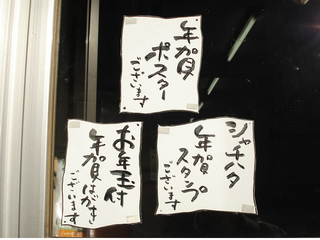 年賀
ポスター
ございます
シャチハタ
年賀
スタンプ
ございます
お年玉付
年賀はがき
ございます